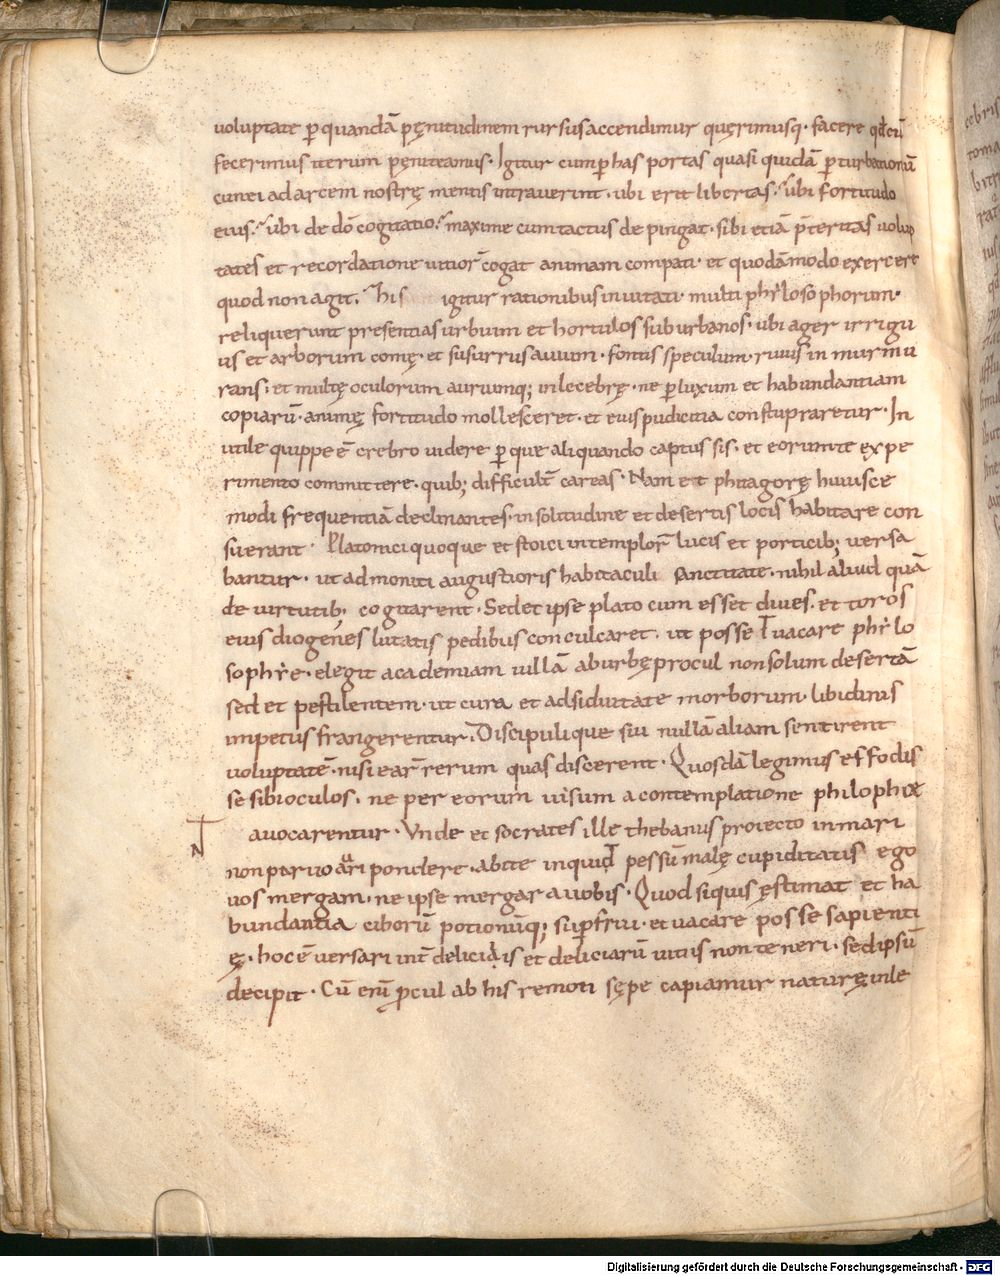 uoluptate p quandā pęnitudinem rursus accendimur quęrimusq· facere qđ cū
fecerimus iterum pęniteamus· Igitur cum p has portas quasi quidā pturbationū
cunei ad arcem nostrę mentis intrauerint· ubi erit libertas· ubi fortitudo
eius· ubi de dō cogitatio· maxime cum tactus depingat· sibi etiā p̄teritas uolup
tates et recordatione uitior̄ cogat animam compati· et quodāmodo exercere
quod non agit. His igitur rationibus inuitati· multi phỳlosophorum·
reliquerunt presentias urbium et hortulos suburbanos· ubi ager irrigu
us et arborum comę· et susurrus auium· fontis speculum· riuus in murmu
rans; et multę oculorum auriumq; inlecebrę· ne p luxum et habundantiam
copiarū· animę fortitudo mollesceret· et eius pudicitia constupraretur· In
utile quippe ē crebro uidere p que aliquando captus sis· et eorum te expe
rimento committere· quib; difficult̄ careas· Nam et phitagorę huiusce
modi frequentiā declinantes· in solitudine et desertis locis habitare con
suerant· Platonici quoque et stoici in templor̄ lucis et porticib; uersa
bantur· ut admoniti augustioris habitaculi sanctitate· nihil aliud quā
de uirtutib; cogitarent· Sed et ipse plato cum esset diues· et toros
eius diogenes lutatis pedibus conculcaret· ut posset uacare phỳlo
sophỳe· elegit academiam uillā ab urbę procul non solum desertā
sed et pestilentem· ut cura et adsiduitate morborum· libidinis
impetus frangerentur· Discipulique sui nullā aliam sentirent
uoluptatē· nisi ear̄ rerum quas discerent· Quosdā legimus effodis
se sibi oculos· ne per eorum uisum a contemplatione philophiæ
auocarentur· Vnde et socrates ille thebanus proiecto in mari
non paruo auri pondere· abite inquid pessū malę cupiditatis ego
uos mergam· ne ipse mergar a uobis· Quod siquis ęstimat et ha
bundantia ciborū potionūq; supfrui· et uacare posse sapienti
ę· hoc ē uersari int̄ deliciais et deliciarū uitiis non teneri· se ipsū
decipit· Cū enī pcul ab his remoti sępe capiamur naturę inle
Digitalisierung gefördert durch die Deutsche Forschungsgemeinschaft - DFG